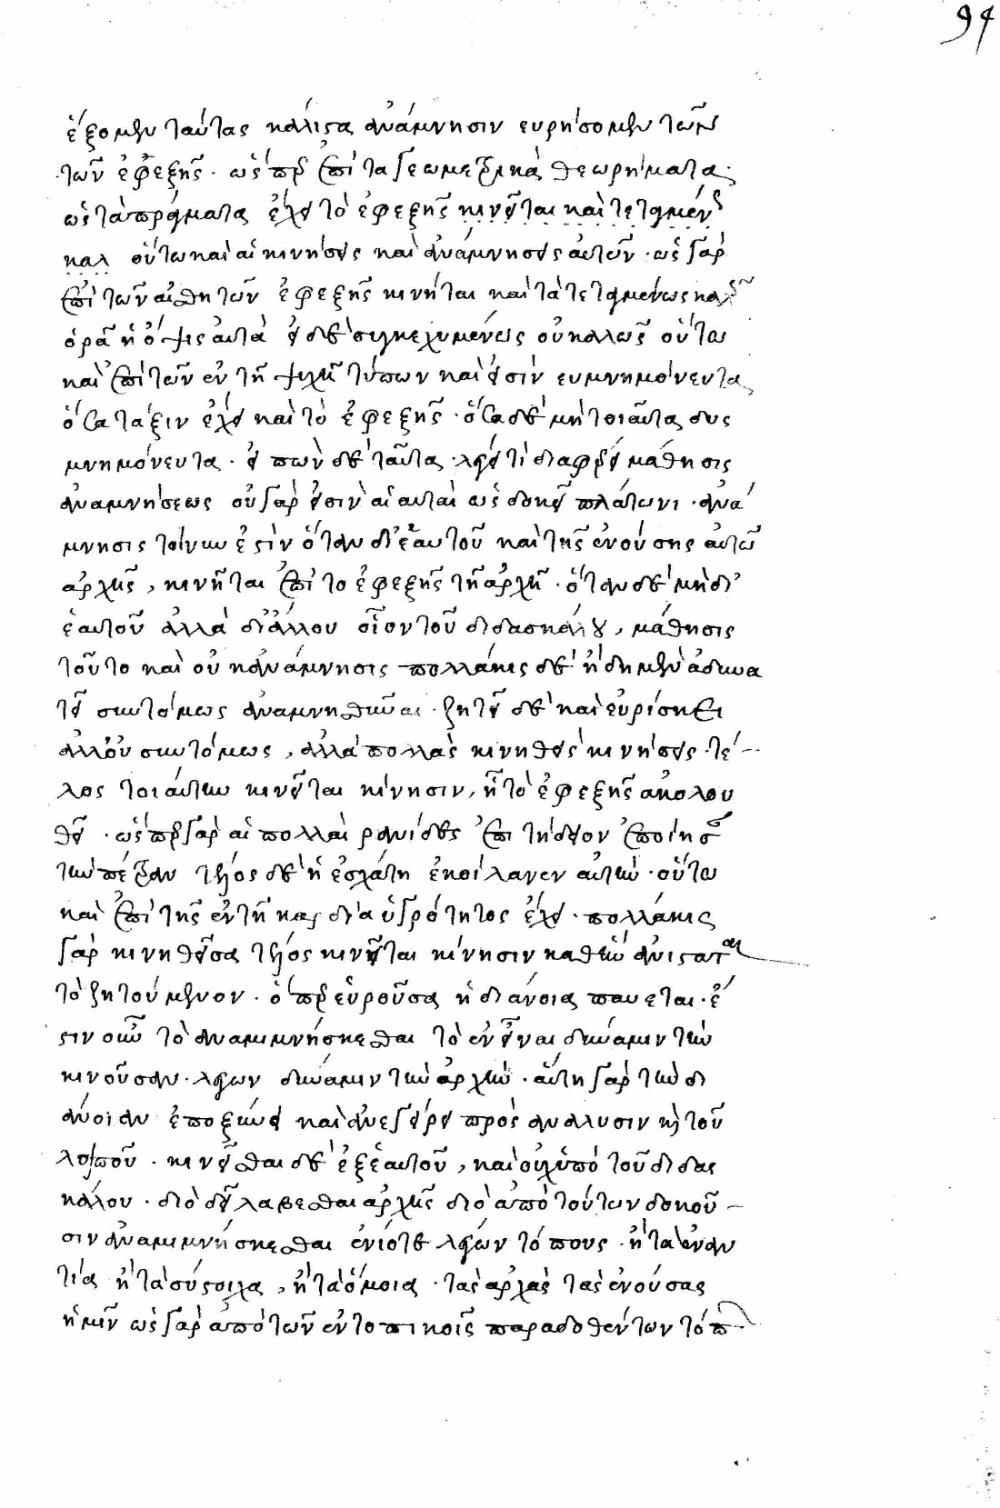 94
ἕξομεν ταύτας κάλιστα ἀνάμνησιν ευρήσομεν τῶν
τῶν ἐφεξῆς. ὡς περ ἐπὶ τα γεωμετρικὰ θεωρήματα.
ὡς τὰ πράγματα ἔχει τὸ ἐφεξῆς κινεῖται καὶ τεταγμένως
καλ οὕτω καὶ αἱ κινήσεις καὶ ἀνάμνησεις αὐτῶν. ὡς γὰρ
ἐπὶ τῶν αἰσθητῶν ἐφεξῆς κινεῖται καὶ τὰ τεταγμένως καλῶς
ὁρᾶ ἡ ὄψις αὐτὰ εἰ δὲ συγκεχυμένως οὐ καλῶς οὕτω
καὶ ἐπὶ τῶν ἐν τῆ ψυχῆ τύπων καὶ εἰσὶν ευμνημόνευτα
ὅσα τάξιν ἔχει καὶ τὸ ἐφεξῆς. ὅσα δὲ μὴ τοιαῦτα δυς
μνημόνευτα. εἰπὼν δὲ ταῦτα. λέγει τί διαφέρει μάθησις
ἀναμνήσεως οὐ γάρ εἰσιν αἱ αὐταὶ ὡς δοκεῖ πλάτωνι. ἀνά
μνησις τοίνυν ἐστὶν ὅταν δι' ἑαυτοῦ καὶ τῆς ἐνούσης αὐτῶ
ἀρχῆς, κινῆται ἐπὶ το ἐφεξῆς τῆ ἀρχῆ. ὅταν δὲ μὴ δι'
ἑαυτοῦ ἀλλὰ δι' ἄλλου οἷον τοῦ διδασκάλου, μάθησις
τοῦτο καὶ οὐκ ἀνάμνησις πολλάκις δὲ ἤδη μὲν ἀδυνα
τεῖ συντόμως ἀναμνησθῆναι. ζητεῖ δὲ καὶ εὑρίσκει
ἀλλ' οὐ συντόμως, ἀλλὰ πολλὰς κινηθεὶς κινήσεις. τέ-
λος τοιαύτην κινεῖται κίνησιν, ἧ τὸ ἐφεξῆς ἀκολου
θεῖ. ὡς περ γὰρ αἱ πολλαὶ ρανίδες ἐπιτήδειον ἐποίησαν
τὴν πέτραν τέλος δὲ ἡ ἐσχάτη ἐκοίλανεν αὐτήν. οὕτω
καὶ ἐπὶ τῆς ἐν τῆ καρδία ὑγρότητος ἔχει. πολλάκις
γὰρ κινηθεῖσα τέλος κινεῖται κίνησιν καθ' ἣν ἀνίσταται
τὸ ζητούμενον. ὅπερ εὑροῦσα ἡ διάνοια παύεται. ἔ
στιν οὖν τὸ ἀναμιμνήσκεσθαι τὸ ἐνεῖναι δύναμιν τὴν
κινοῦσαν. λέγων δύναμιν τὴν ἀρχήν. αὕτη γὰρ τὴν δι
άνοιαν ἐποξύνει καὶ ἀνεγείρει πρὸς ἀνάλυσιν τοῦ
λοιποῦ. κινεῖσθαι δὲ ἐξ ἑαυτοῦ, καὶ οὐχ ὑπὸ τοῦ διδας
κάλου. διὸ δεῖ λαβεσθαι ἀρχῆς διὸ ἀπὸ τούτων δοκοῦ-
σιν ἀναμιμνήσκεσθαι ἐνίοτε λέγων τόπους. ἢ τὰ ἐναν
τία ἢ τὰ σύστοιχα, ἢ τὰ ὅμοια. τὰς ἀρχὰς τὰς ἐνούσας
ἡμῖν ὡς γὰρ ἀπὸ τῶν ἐν τοπικοῖς παραδοθέντων τόπων